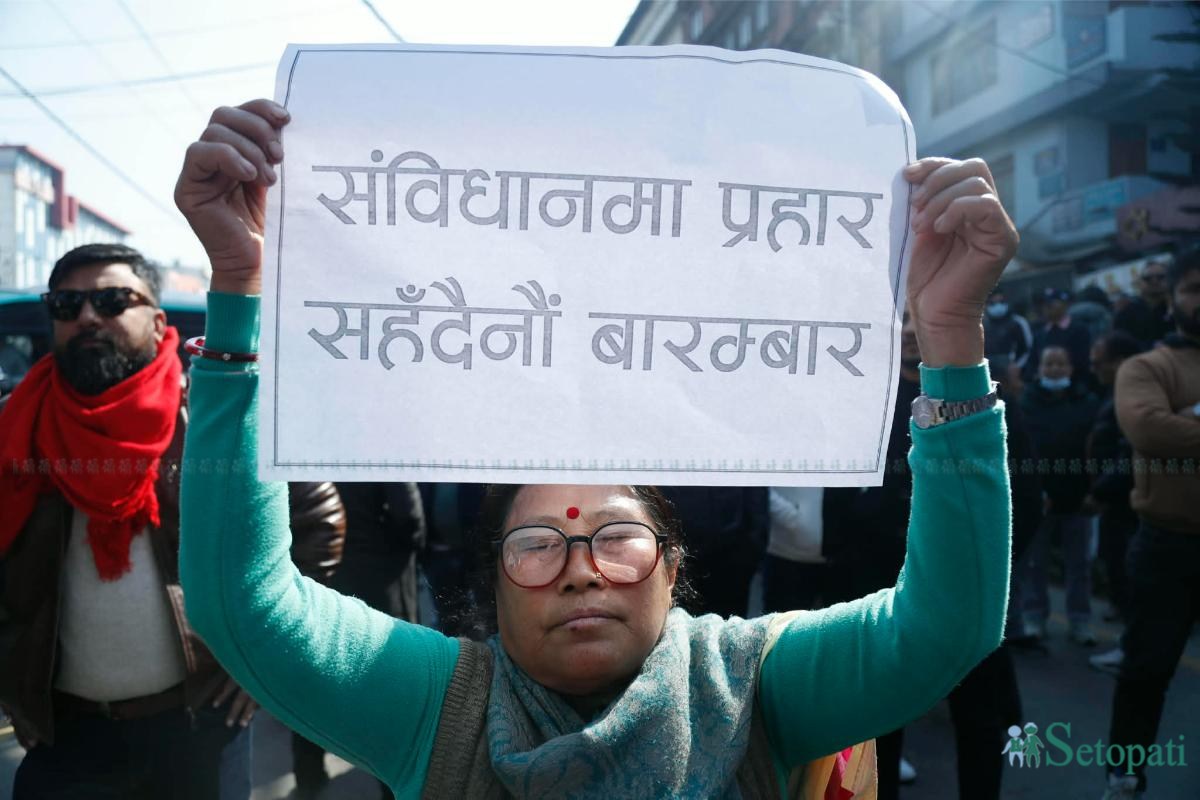 संविधानमा प्रहार
सहँदैनौं बारम्बार
Setopati